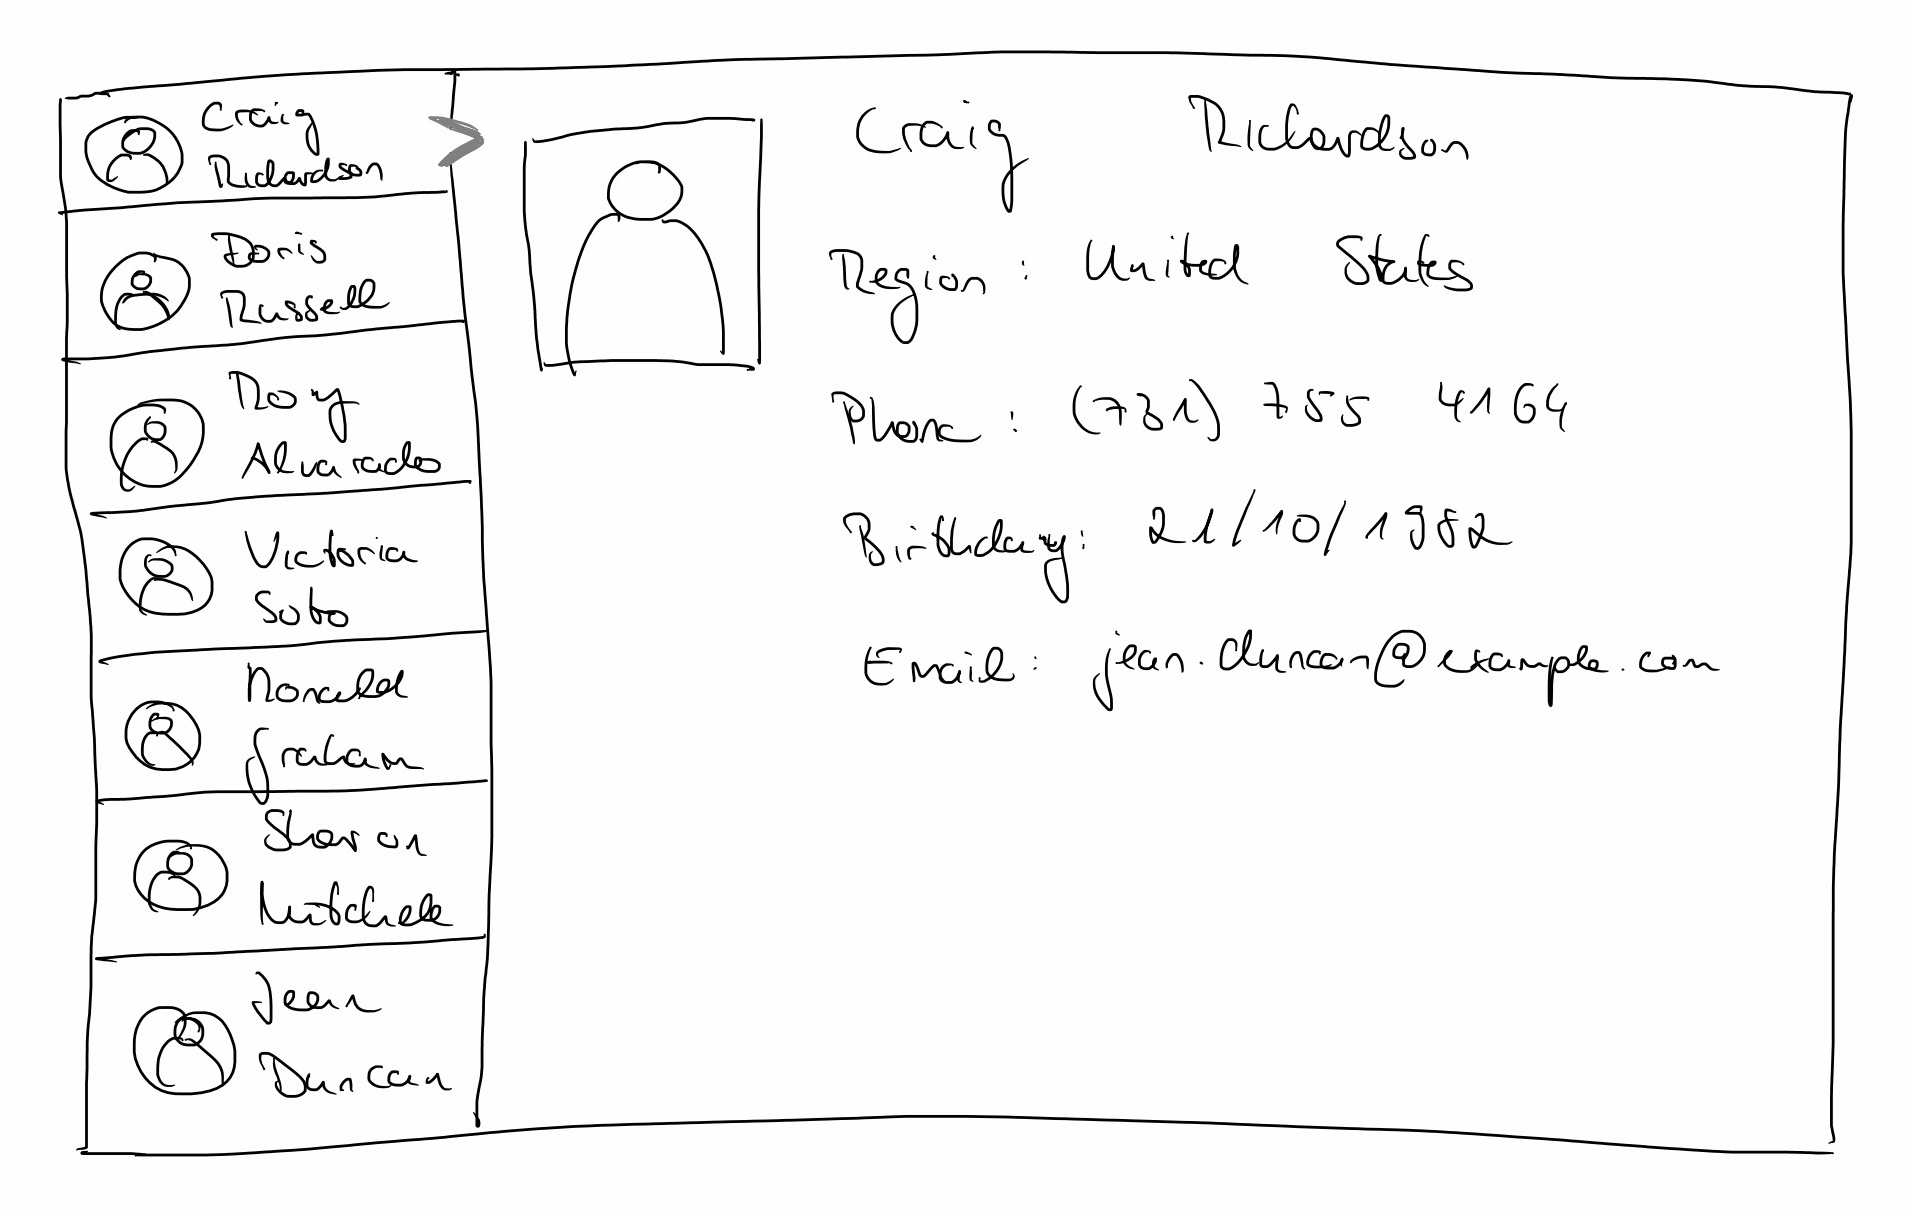 Craig
Richardson
Doris
Russell
Roy
Alvarado
Victoria
Soto
Ronald
Graham
Sharon
Mitchell
Jean
Duncan
Craig Richardson
Region: United States
Phone: (731) 755 4164
Birthday: 21/10/1982
Email: jean.duncan@example.com